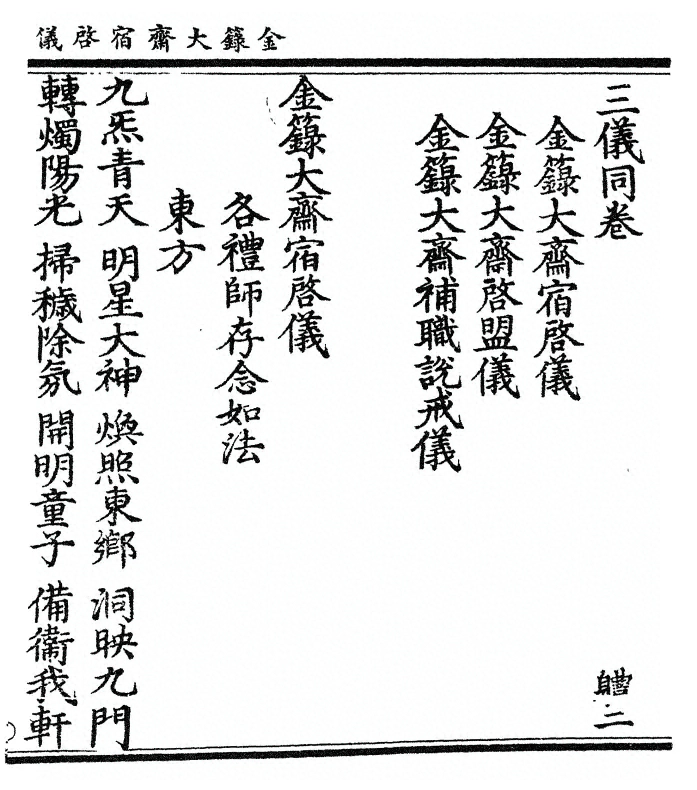 金籙大齋宿啓儀
三儀同卷
金籙大齋宿啓儀
金籙大齋啓盟儀
金籙大齋補職說戒儀
金籙大齋宿啓儀
各禮師存念如法
東方
九炁青天 明星大神 煥照東鄉 洞映九門
轉燭陽光 掃穢除氛 開明童子 備衞我軒